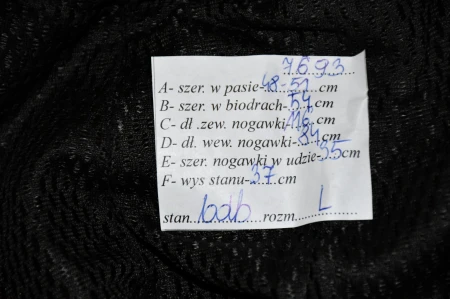 7693
A- szer. w pasie-48-51...cm
B- szer. w biodrach-54...cm
C- dł .zew. nogawki-116.cm
D- dł. wew. nogawki-84cm
E- szer. nogawki w udzie-35cm
F- wys stanu-37...cm
stan..bdb......rozm...L......